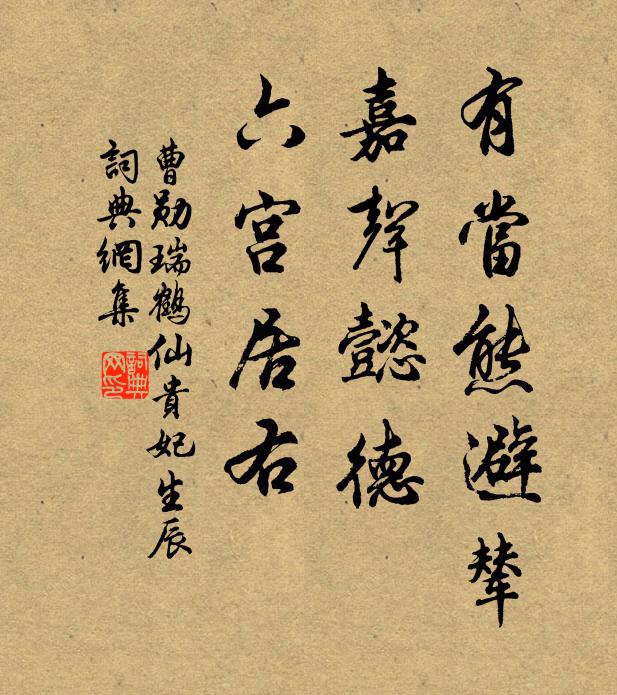 有當熊避輦
嘉聲懿德
六宮居右
曹勛瑞鶴仙貴妃生辰
詞典網集
詞典网印